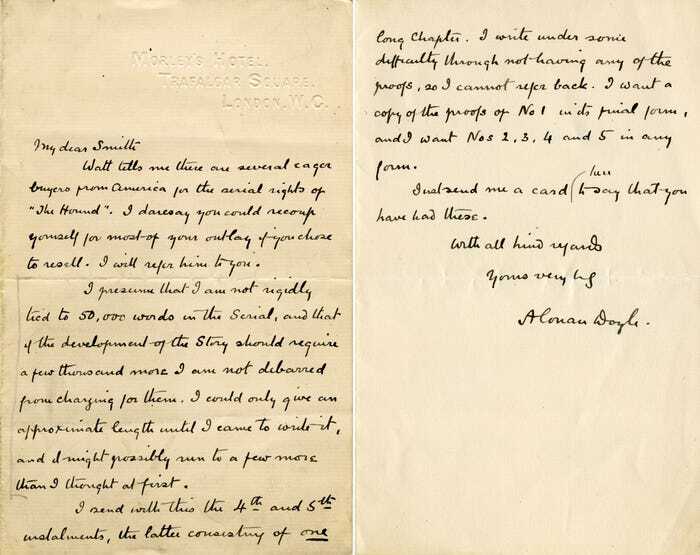 MORLEY'S HOTEL.
TRAFALGAR SQUARE.
LONDON. W.C.
My dear Smith
Watt tells me there are several eager
buyers from America for the serial rights of
"The Hound". I daresay you could recoup
yourself for most of your outlay if you chose
to resell. I will refer him to you.
I presume that I am not rigidly
tied to 50,000 words in the Serial, and that
if the development of the Story should require
a few thousand more I am not debarred
from charging for them. I could only give an
approximate length until I came to write it,
and I might possibly run to a few more
than I thought at first.
I send with this the 4th and 5th
instalments, the latter consisting of one
long Chapter. I write under some
difficulty through not having any of the
proofs, so I cannot refer back. I want a
copy of the proofs of No 1 in its final form,
and I want Nos 2, 3, 4 and 5 in any
form.
Just send me a card to say that you
have had these.
With all kind regards
Yours very
A Conan Doyle.